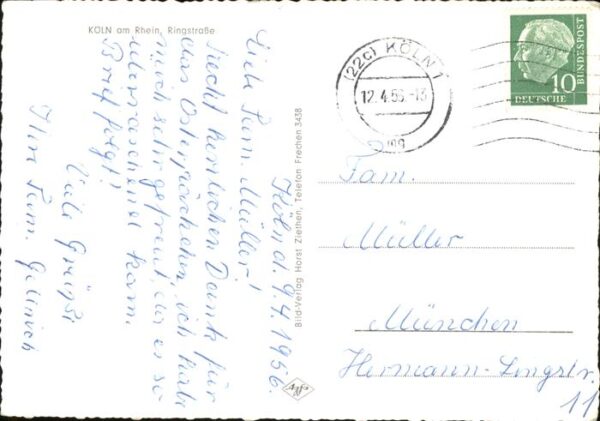 KÖLN am Rhein, Ringstraße
Köln d. 9.4.1956.
Liebe Fam. Müller!
Recht herzlichen Dank für
das Osterpäckchen, ich habe
mich sehr gefreut, da es so
überraschend kam.
Brief folgt!
Viele Grüße
Ihre Fam.
Bild-Verlag Horst Ziethen, Telefon Frechen 3438
(22c) KÖLN 1
12.4.56.-13
mg
10
DEUTSCHE
BUNDESPOST
Fam.
Müller
München
Hermann-Lingstr.
11